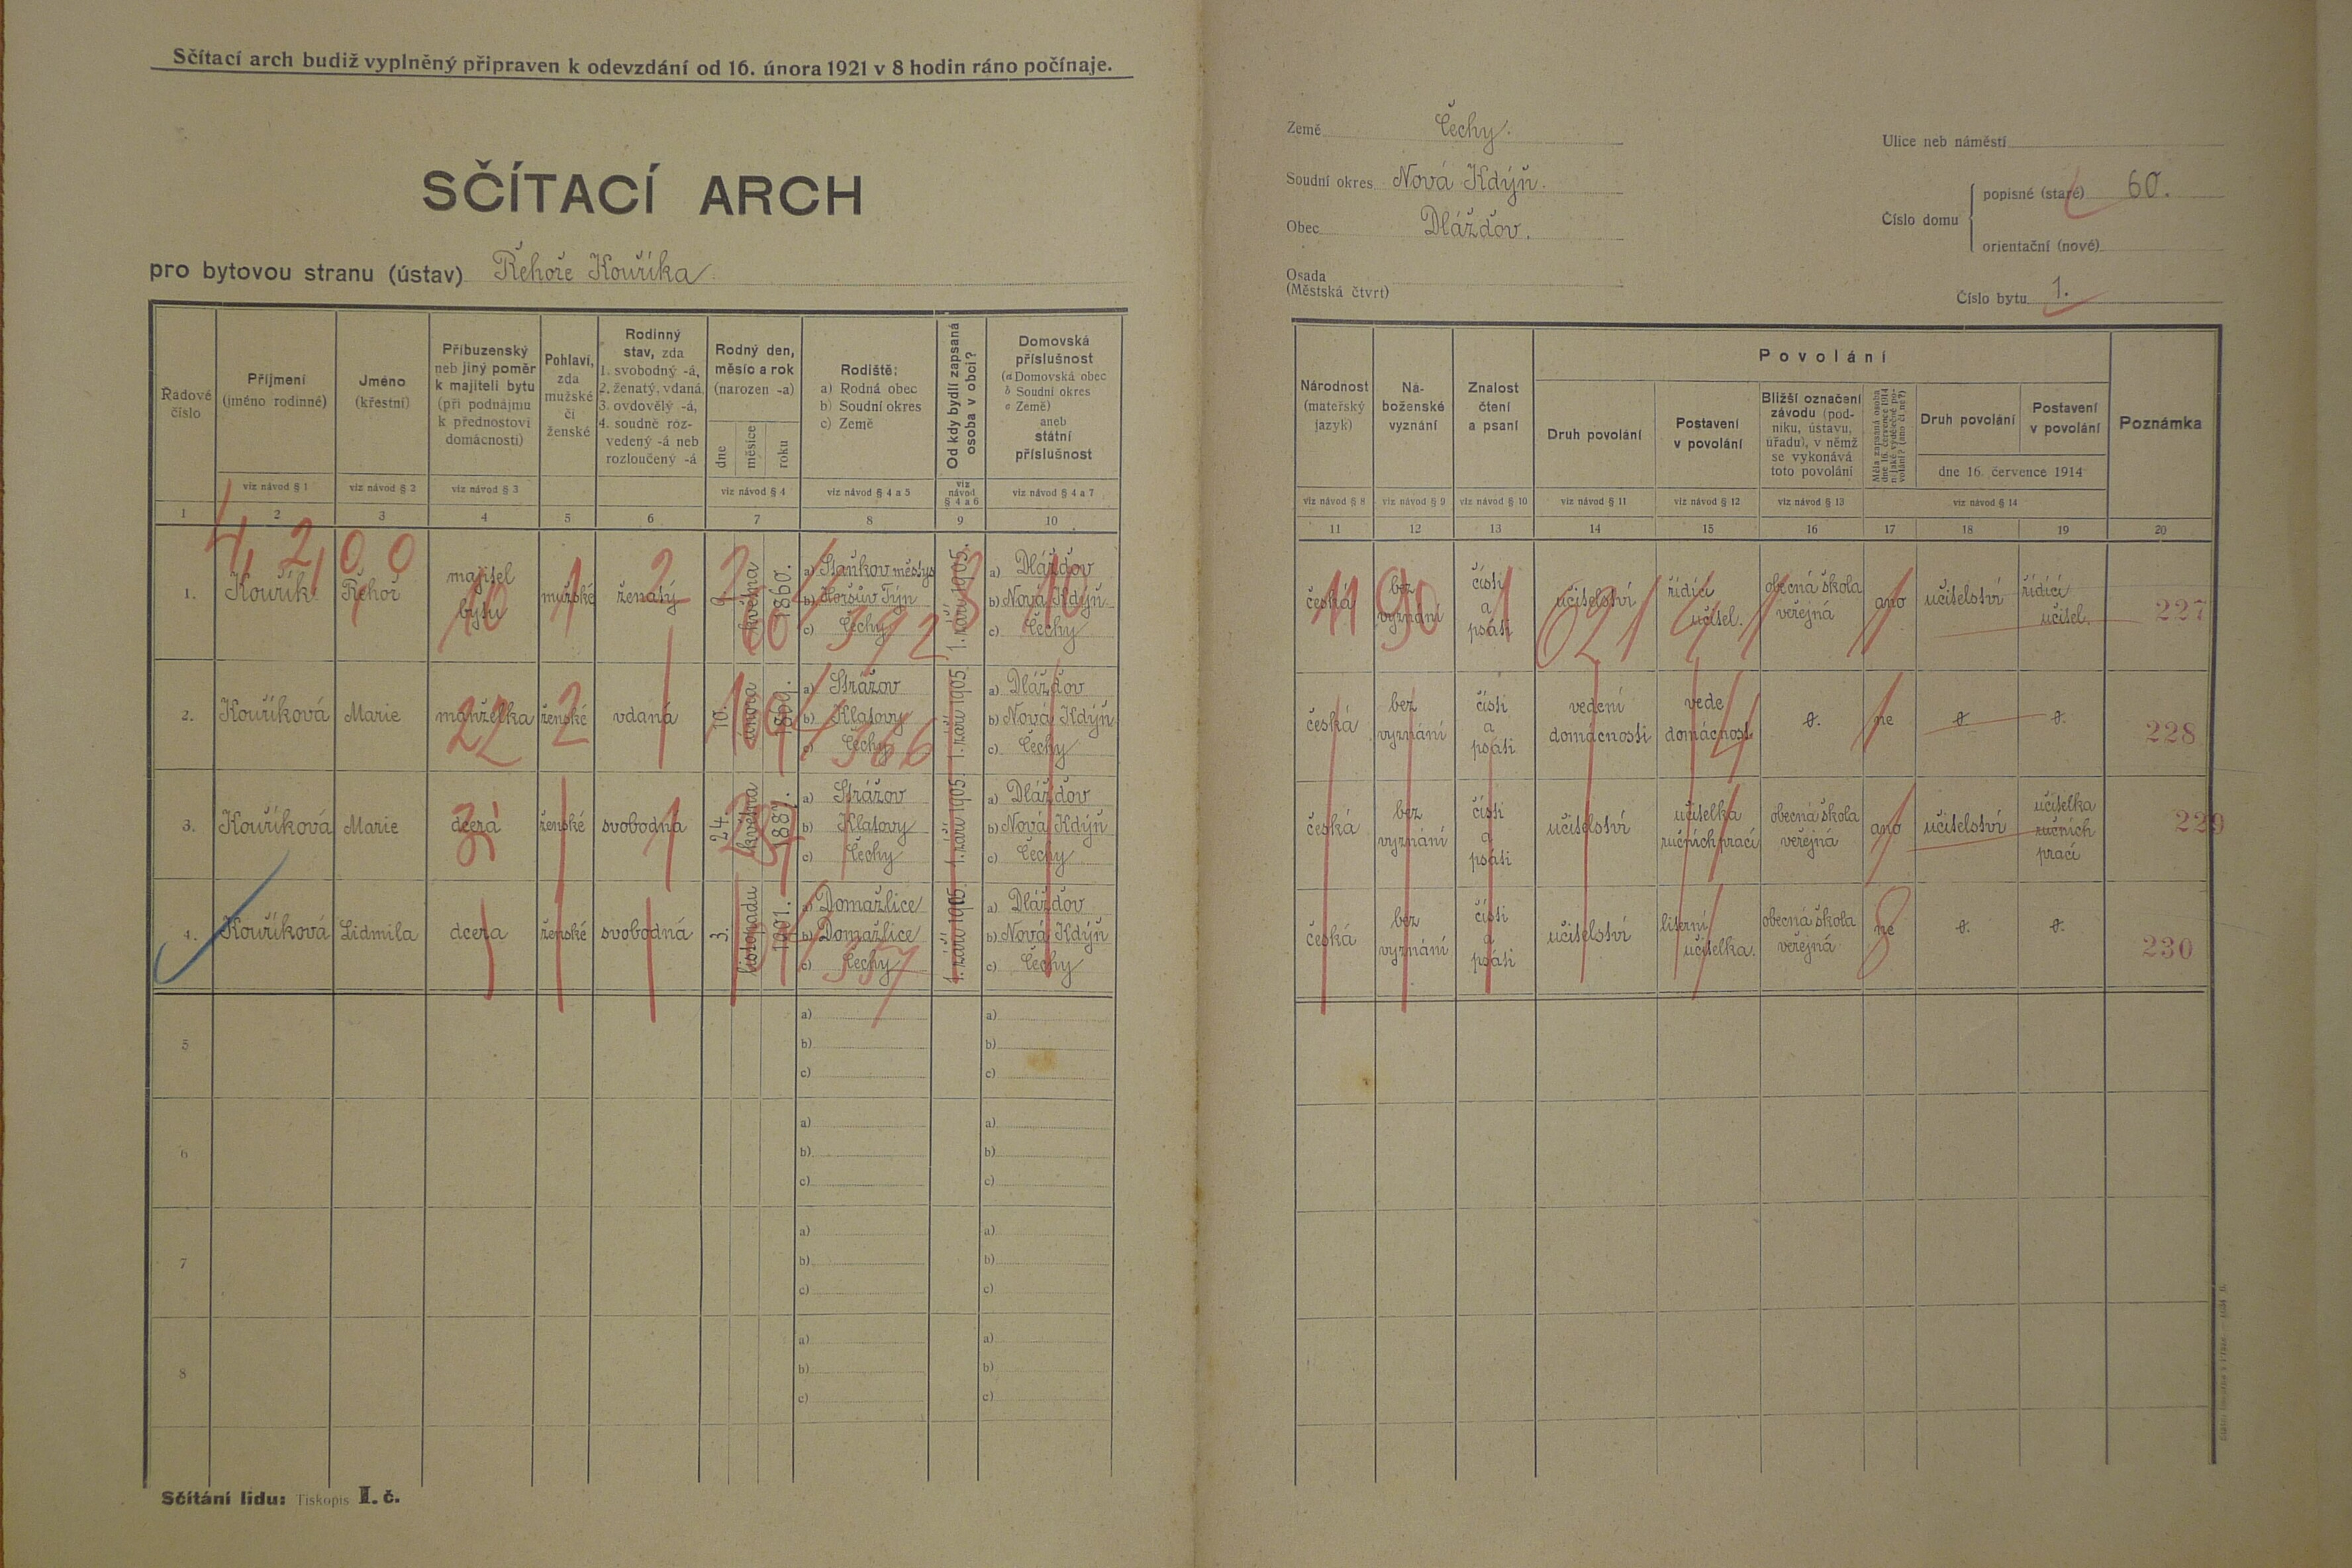 Sčítací arch budiž vyplněný připraven k odevzdání od 16. února 1921 v 8 hodin ráno počínaje.
SČÍTACÍ ARCH
pro bytovou stranu (ústav) Řehoře Kouříka
Země Čechy.
Soudní okres Nová Kdýň.
Obec Dlážďov.
Osada
(Městská čtvrt)
Ulice neb náměstí
Číslo domu
popisné (staré) 60.
orientační (nové)
Číslo bytu 1.
Řadové číslo
Příjmení (jméno rodinné)
Jméno (křestní)
Příbuzenský neb jiný poměr k majiteli bytu (při podnájmu k přednostovi domácnosti)
Pohlaví, zda mužské či ženské
Rodinný stav, zda 1. svobodný -á, 2. ženatý, vdaná, 3. ovdovělý -á, 4. soudně rozvedený -á neb rozloučený -á
Rodný den, měsíc a rok (narozen -a)
dne měsíce roku
Rodiště: a) Rodná obec b) Soudní okres c) Země
Od kdy bydlí zapsaná osoba v obci?
Domovská příslušnost (a Domovská obec b Soudní okres c Země) aneb státní příslušnost
viz návod § 1 viz návod § 2 viz návod § 3 viz návod § 4 viz návod § 4 a 5 viz návod § 4 a 6 viz návod § 4 a 7
1 2 3 4 5 6 7 8 9 10
Národnost (mateřský jazyk)
Náboženské vyznání
Znalost čtení a psaní
Povolání
Druh povolání
Postavení v povolání
Bližší označení závodu (podniku, ústavu, úřadu), v němž se vykonává toto povolání
Měla zapsaná osoba dne 16. července 1914 nějaké výdělečné povolání? (ano či ne?)
Druh povolání
Postavení v povolání
dne 16. července 1914
Poznámka
viz návod § 8 viz návod § 9 viz návod § 10 viz návod § 11 viz návod § 12 viz návod § 13 viz návod § 14
11 12 13 14 15 16 17 18 19 20
1. Kouřík Řehoř majitel bytu mužské ženatý května 1860. a) Staňkov městys b) Horšův Týn c) Čechy 1. září 1905. a) Dlážďov b) Nová Kdýň c) Čechy
česká bez vyznání čísti a psáti učitelství řídící učitel. obecná škola veřejná ano učitelství řídící učitel. 227
2. Kouříková Marie manželka ženské vdaná 10. února a) Strážov b) Klatovy c) Čechy 1. září 1905. a) Dlážďov b) Nová Kdýň c) Čechy
česká bez vyznání čísti a psáti vedení domácnosti vede domácnost 0. ne 0. 0. 228
3. Kouříková Marie dcera ženské svobodná 24. května 1887. a) Strážov b) Klatovy c) Čechy 1. září 1905. a) Dlážďov b) Nová Kdýň c) Čechy
česká bez vyznání čísti a psáti učitelství učitelka ručních prací obecná škola veřejná ano učitelství učitelka ručních prací 229
4. Kouříková Lidmila dcera ženské svobodná 3. listopadu 1901. a) Domažlice b) Domažlice c) Čechy 1. září 1905. a) Dlážďov b) Nová Kdýň c) Čechy
česká bez vyznání čísti a psáti učitelství literní učitelka. obecná škola veřejná ne 0. 0. 230
5 a) b) c) a) b) c)
6 a) b) c) a) b) c)
7 a) b) c) a) b) c)
8 a) b) c) a) b) c)
Sčítání lidu: Tiskopis I. č.